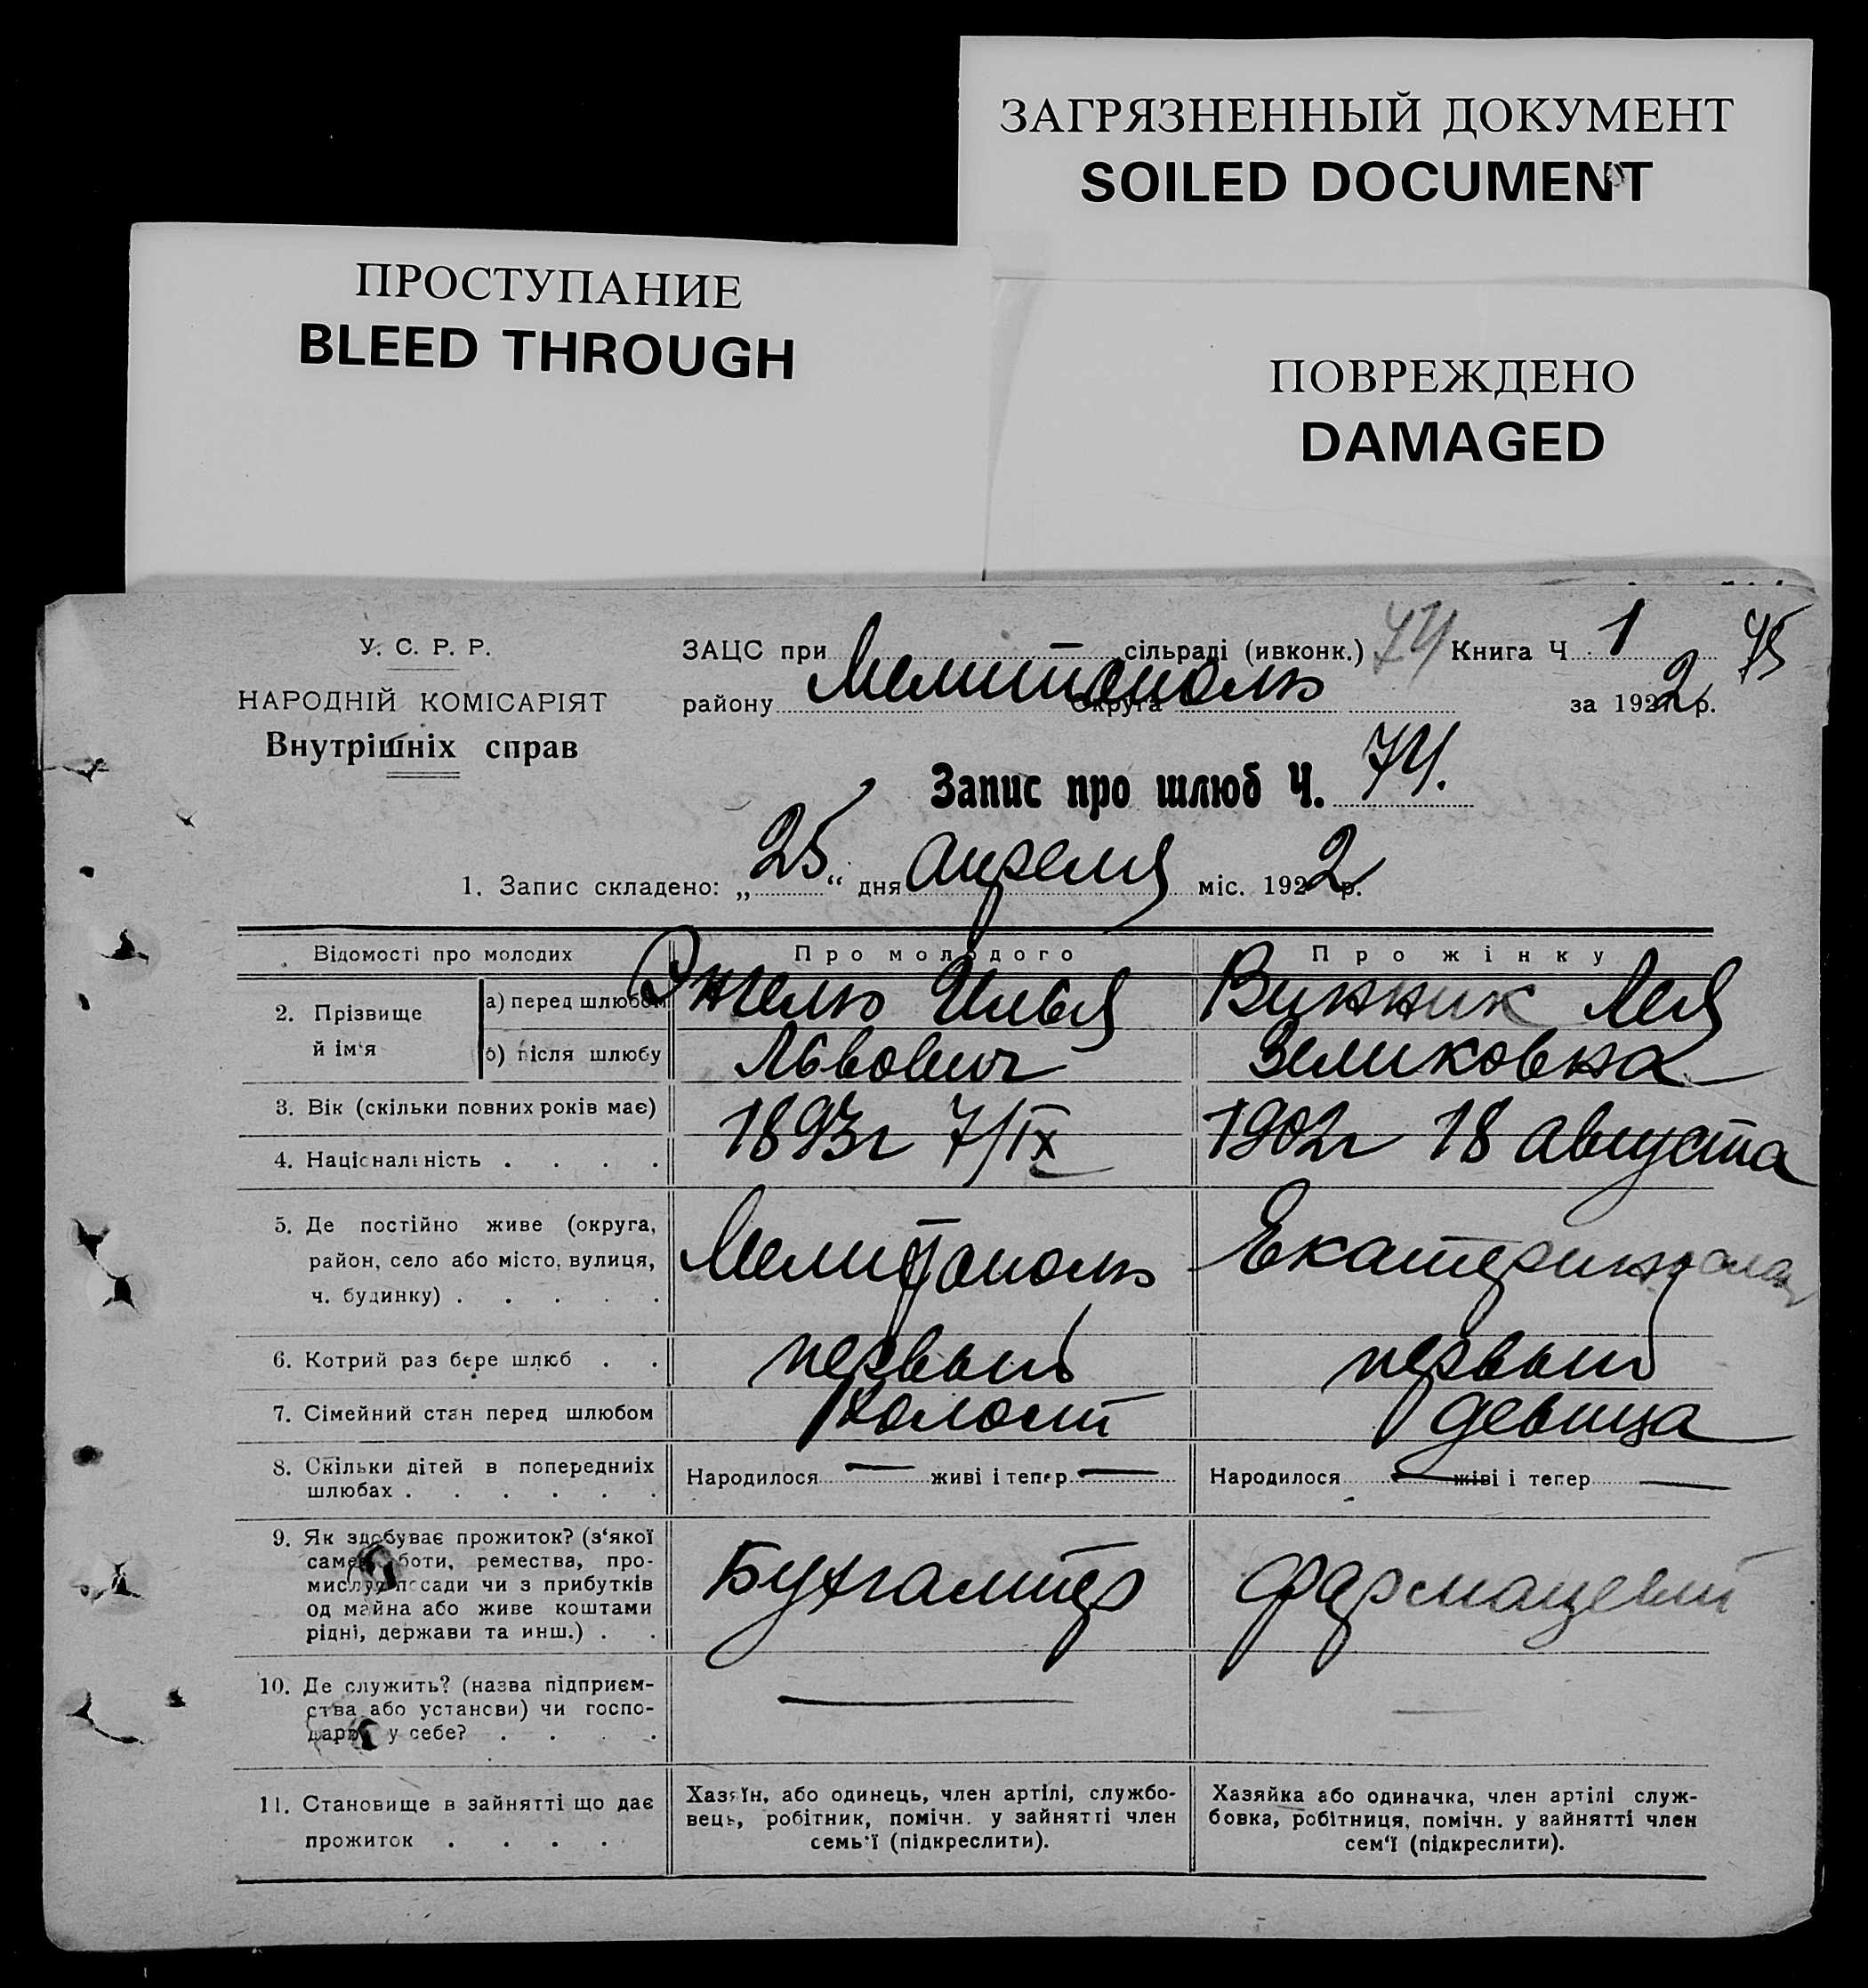 ЗАГРЯЗНЕННЫЙ ДОКУМЕНТ
SOILED DOCUMENT
ПРОСТУПАНИЕ
BLEED THROUGH
ПОВРЕЖДЕНО
DAMAGED
У. С. Р. Р.
НАРОДНІЙ КОМІСАРІЯТ
Внутрішніх справ
ЗАЦС при сільраді (ивконк.) 74 Книга Ч. 1 75
району Мелитополь Округа за 1922 р.
Запис про шлюб Ч. 74.
1. Запис складено: „25“ дня апреля міс. 1922 р.
Відомості про молодих
Про молодого
Про жінку
2. Прізвище й ім‘я
а) перед шлюбом
б) після шлюбу
Энгель Илья
Львович
Винник Лея
Зеликовна
3. Вік (скільки повних років має)
4. Національність . . . .
1893г 7/IX
1902г 18 августа
5. Де постійно живе (округа,
район, село або місто, вулиця,
ч. будинку) . . . . .
Мелитополь
6. Котрий раз бере шлюб . .
первый
первый
7. Сімейний стан перед шлюбом
холост
девица
8. Скільки дітей в попередниіх
шлюбах . . . . . .
Народилося — живі і тепер —
Народилося — живі і тепер —
9. Як здобуває прожиток? (з‘якої
саме роботи, ремества, про-
мислу, посади чи з прибутків
од майна або живе коштами
рідні, держави та инш.) . .
Бухгалтер
фармацевт
10. Де служить? (назва підприєм-
ства або установи) чи госпо-
дарює у себе? . . . .
—
—
11. Становище в зайнятті що дає
прожиток . . . .
Хазяїн, або одинець, член артілі, службо-
вець, робітник, помічн. у зайнятті член
семь‘ї (підкреслити).
Хазяйка або одиначка, член артілі служ-
бовка, робітниця, помічн. у зайнятті член
сем‘ї (підкреслити).